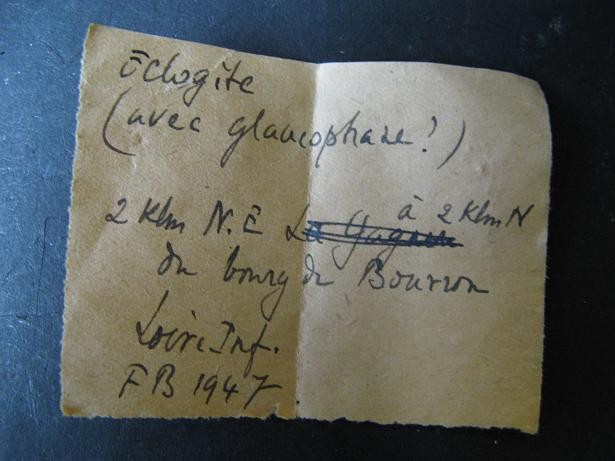 Éclogite
(avec glaucophane!)
à 2 Klm N
2 Klm N.E La
du bourg de Bouvron
Loire Inf.
FB 1947